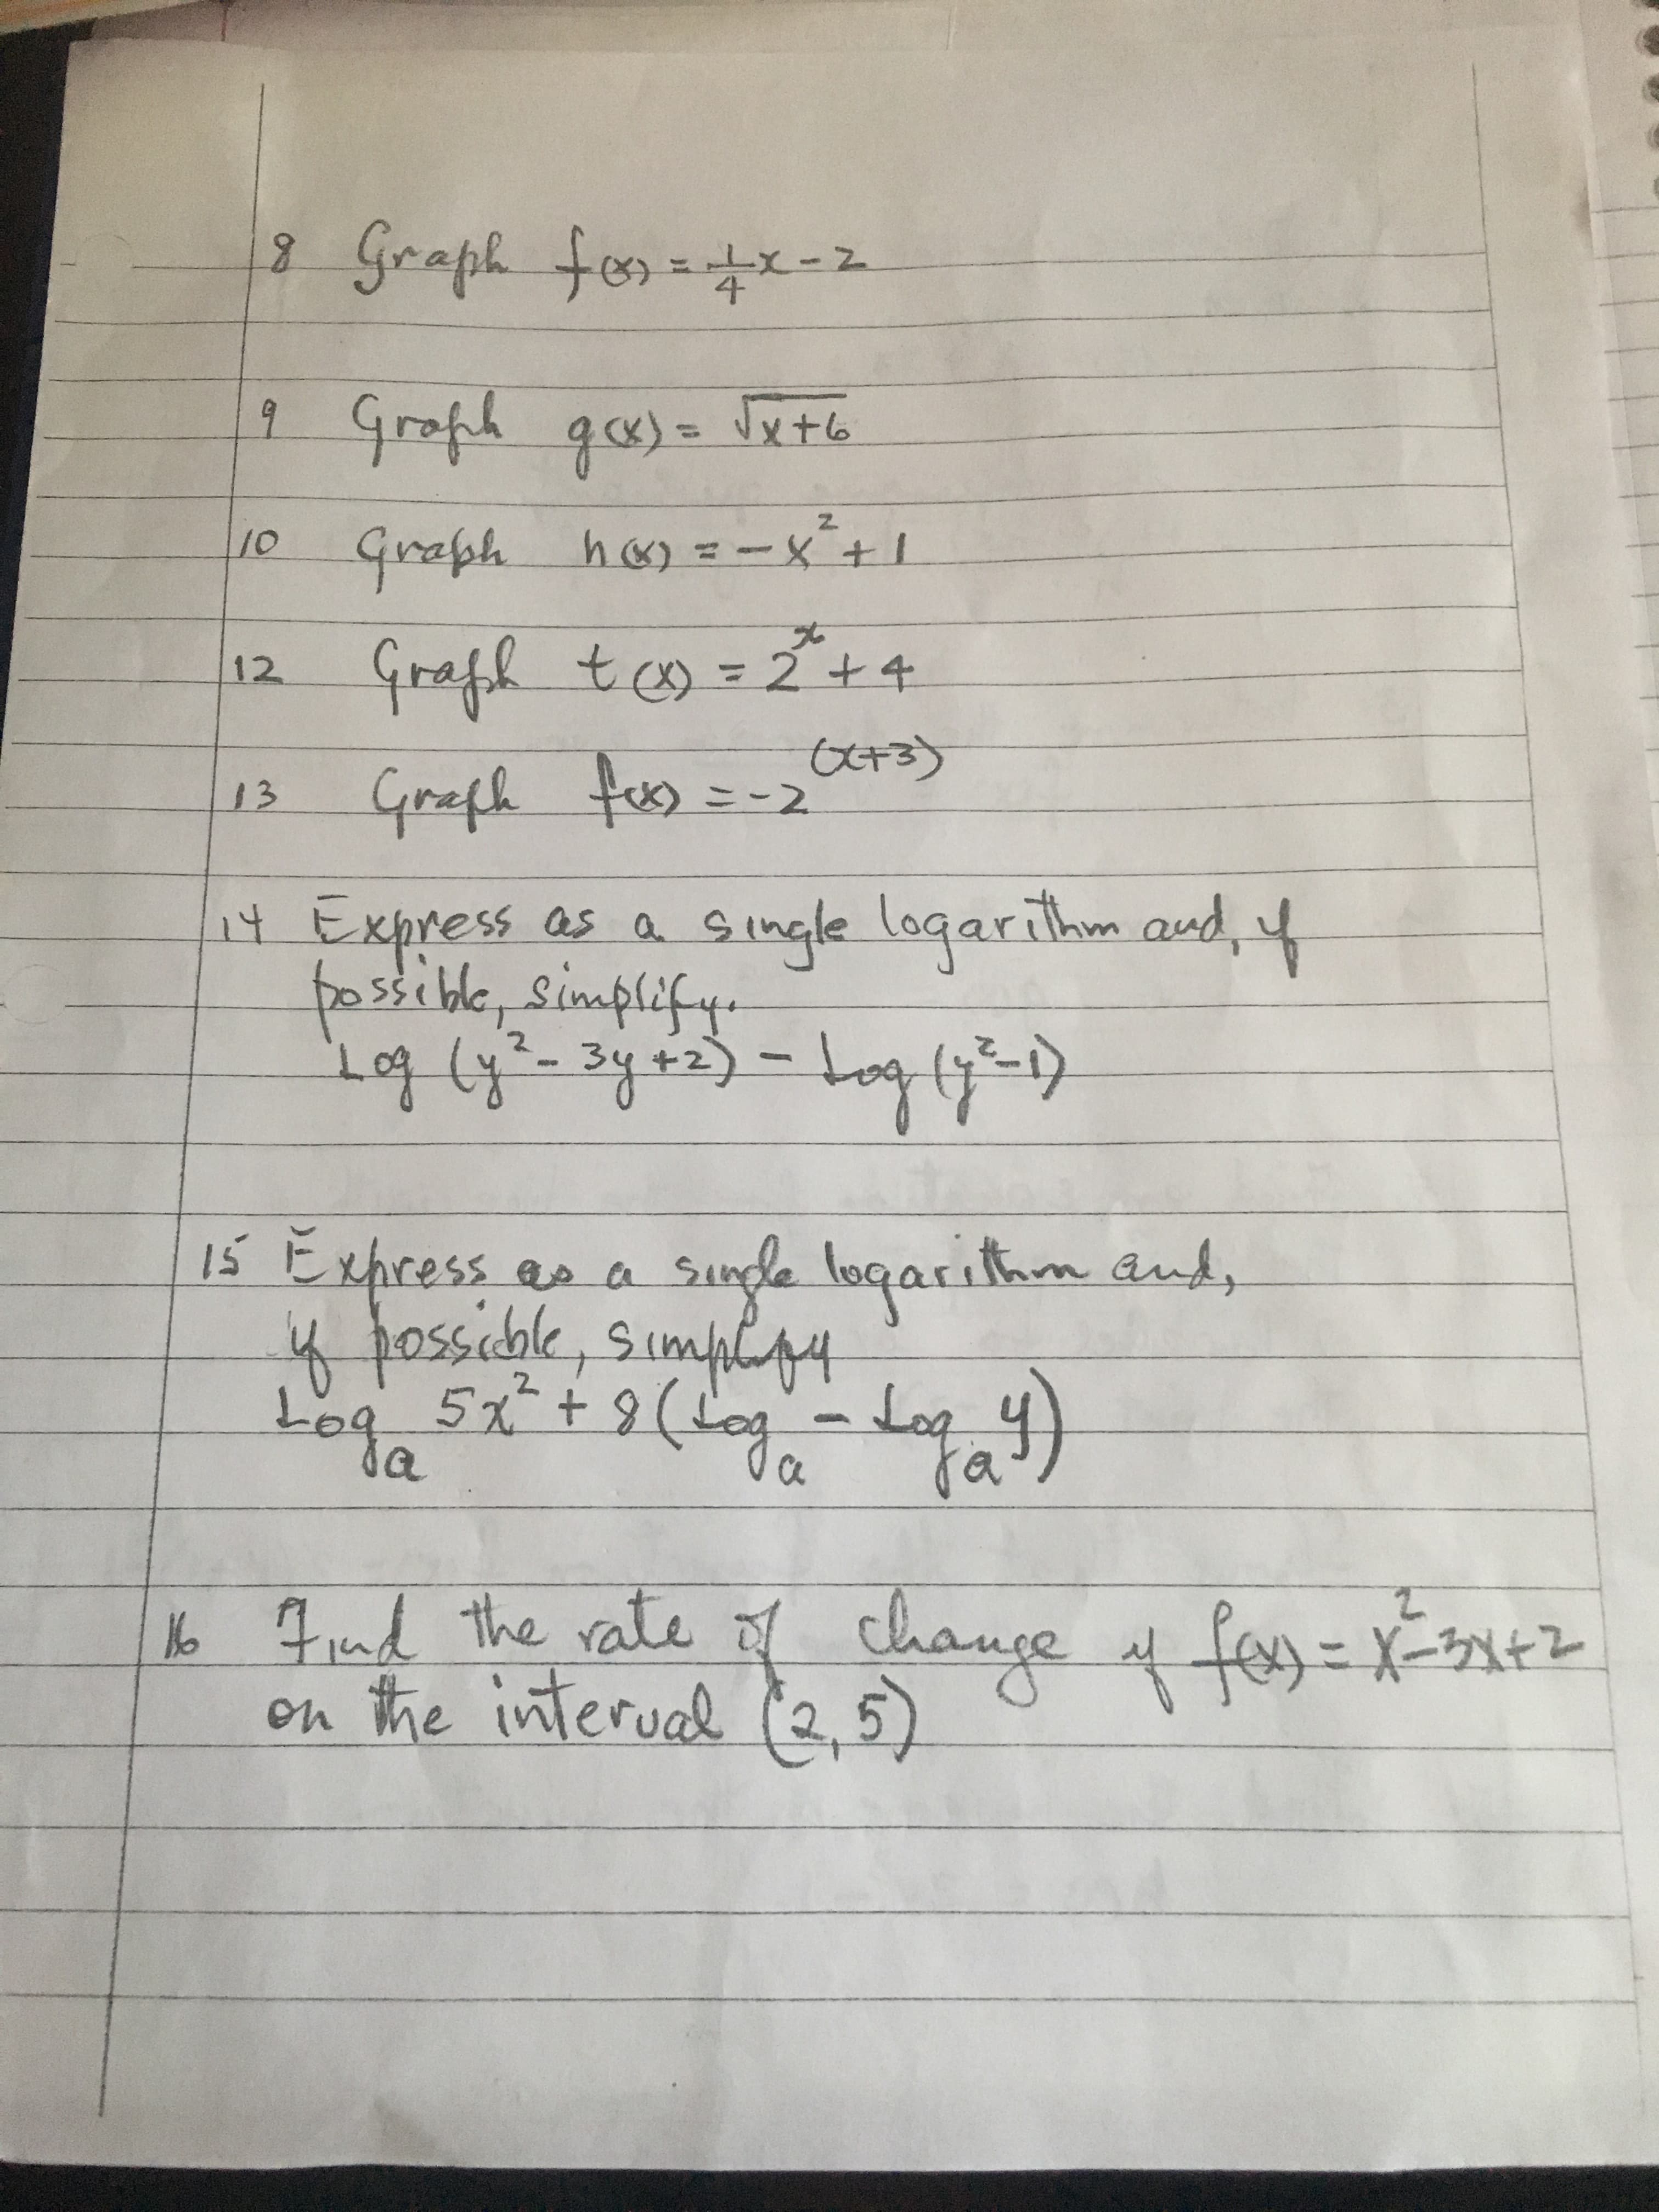 8 Graph f(x) = 1/4 x - 2
9 Graph g(x) = √(x+6)
10 Graph h(x) = -x² + 1
12 Graph t(x) = 2^x + 4
13 Graph f(x) = -2^(x+3)
14 Express as a single logarithm and, if
possible, simplify.
Log (y² - 3y + 2) - Log (y² - 1)
15 Express as a single logarithm and,
if possible, simplify
Log_a 5x² + 8(Log_a - Log_a y)
16 Find the rate of change if f(x) = x² - 3x + 2
on the interval (2, 5)